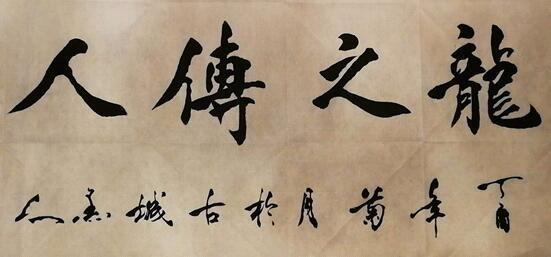 龍之傳人
丁酉年菊月於古城